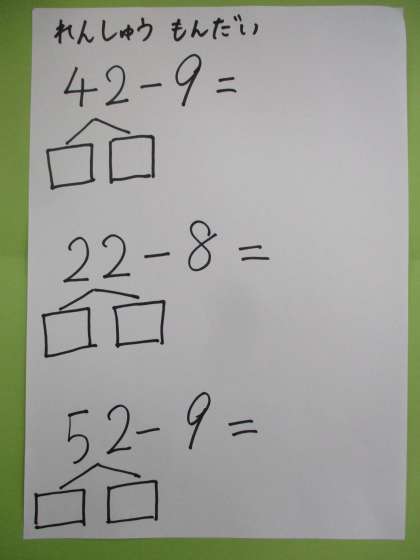 れんしゅう もんだい
42-9=
22-8=
52-9=